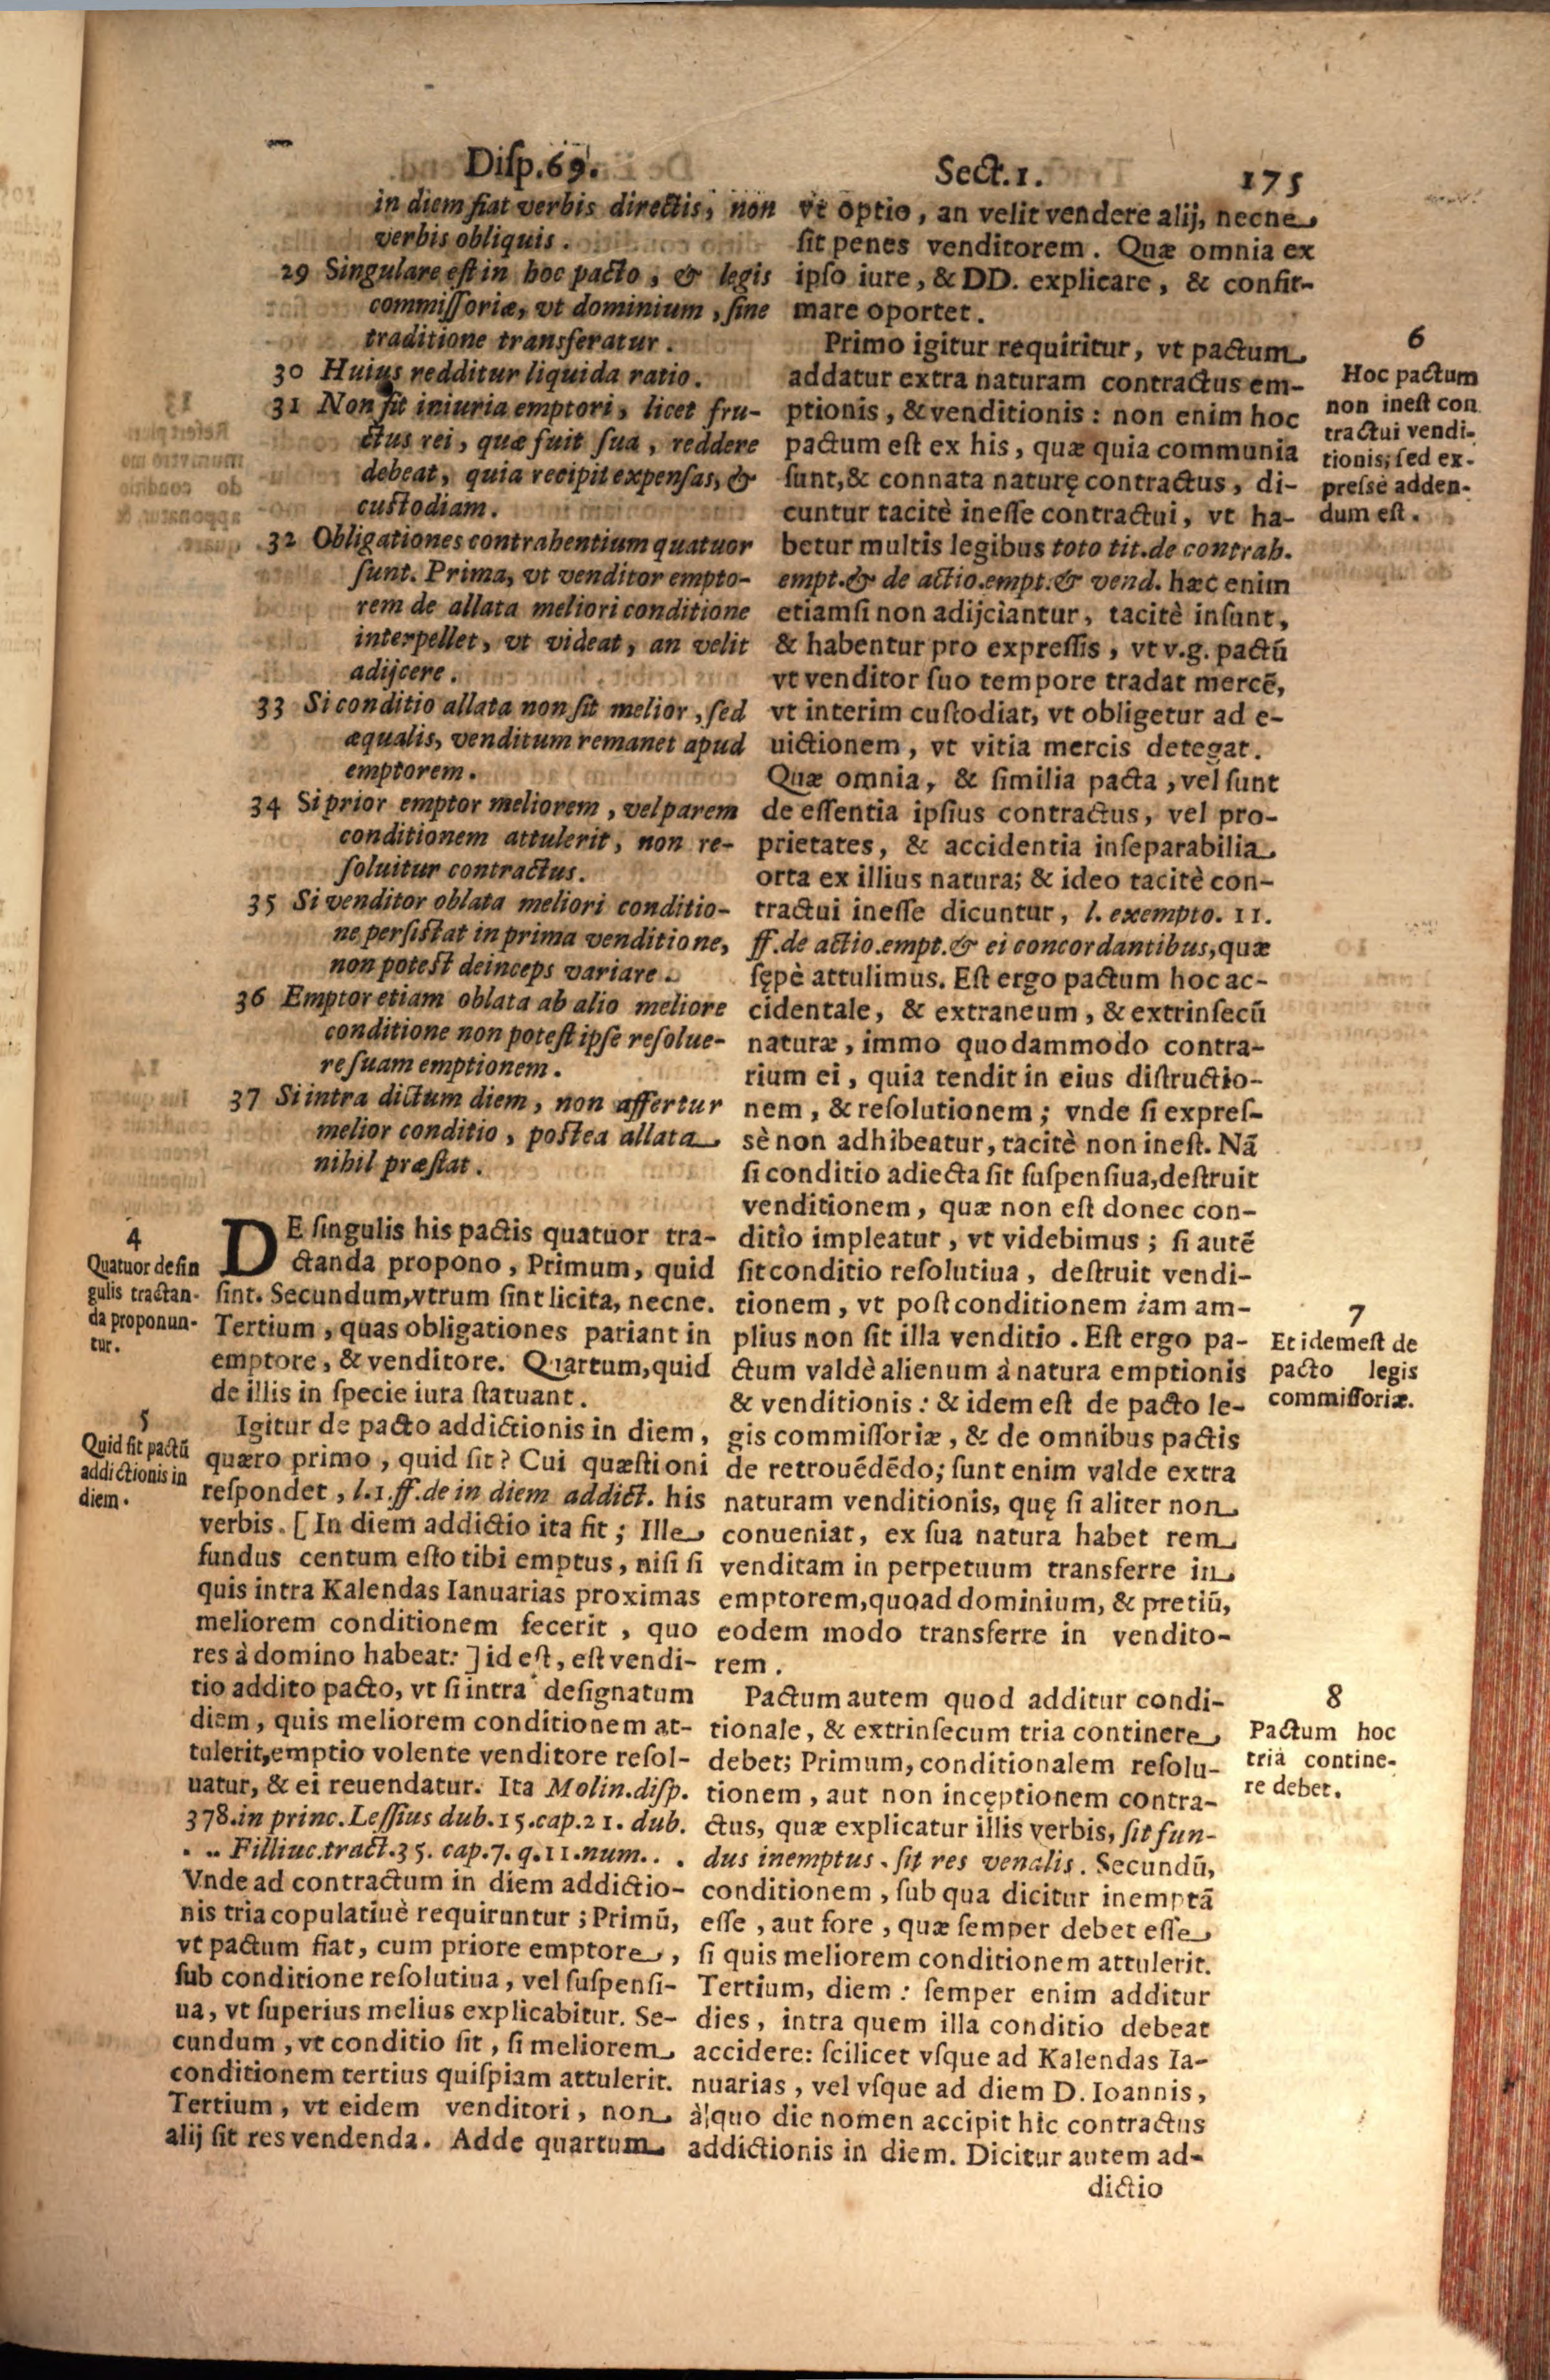 Disp.69. Sect.1. 175
in diem fiat verbis directis, non
verbis obliquis.
29 Singulare est in hoc pacto, & legis
commissoriæ, vt dominium, sine
traditione transferatur.
30 Huius redditur liquida ratio.
31 Non fit iniuria emptori, licet fru-
ctus rei, quæ fuit sua, reddere
debeat, quia recipit expensas, &
custodiam.
32 Obligationes contrahentium quatuor
sunt. Prima, vt venditor empto-
rem de allata meliori conditione
interpellet, vt videat, an velit
adijcere.
33 Si conditio allata non sit melior, sed
æqualis, venditum remanet apud
emptorem.
34 Si prior emptor meliorem, vel parem
conditionem attulerit, non re-
soluitur contractus.
35 Si venditor oblata meliori conditio-
ne persistat in prima venditione,
non potest deinceps variare.
36 Emptor etiam oblata ab alio meliore
conditione non potest ipse resolue-
re suam emptionem.
37 Si intra dictum diem, non affertur
melior conditio, postea allata
nihil præstat.
4
Quatuor de sin
gulis tractan-
da proponun-
tur.
DE singulis his pactis quatuor tra-
ctanda propono, Primum, quid
sint. Secundum, vtrum sint licita, necne.
Tertium, quas obligationes pariant in
emptore, & venditore. Quartum, quid
de illis in specie iura statuant.
5
Quid sit pactū
addictionis in
diem.
Igitur de pacto addictionis in diem,
quæro primo, quid sit? Cui quæstioni
respondet, l.1.ff.de in diem addict. his
verbis. [In diem addictio ita fit; Ille
fundus centum esto tibi emptus, nisi si
quis intra Kalendas Ianuarias proximas
meliorem conditionem fecerit, quo
res à domino habeat:] id est, est vendi-
tio addito pacto, vt si intra designatum
diem, quis meliorem conditionem at-
tulerit, emptio volente venditore resol-
uatur, & ei reuendatur. Ita Molin.disp.
378.in princ.Lessius dub.15.cap.21. dub.
. .. Filliuc.tract.35. cap.7. q.11.num.. .
Vnde ad contractum in diem addictio-
nis tria copulatiuè requiruntur; Primū,
vt pactum fiat, cum priore emptore,
sub conditione resolutiua, vel suspensi-
ua, vt superius melius explicabitur. Se-
cundum, vt conditio sit, si meliorem
conditionem tertius quispiam attulerit.
Tertium, vt eidem venditori, non
alij sit res vendenda. Adde quartum
vt optio, an velit vendere alij, necne
sit penes venditorem. Quæ omnia ex
ipso iure, & DD. explicare, & confir-
mare oportet.
6
Hoc pactum
non inest con
tractui vendi-
tionis; sed ex-
presse adden-
dum est.
Primo igitur requiritur, vt pactum
addatur extra naturam contractus em-
ptionis, & venditionis: non enim hoc
pactum est ex his, quæ quia communia
sunt, & connata naturę contractus, di-
cuntur tacitè inesse contractui, vt ha-
betur multis legibus toto tit.de contrah.
empt.& de actio.empt.& vend. hæc enim
etiamsi non adijciantur, tacitè insunt,
& habentur pro expressis, vt v.g. pactū
vt venditor suo tempore tradat mercē,
vt interim custodiat, vt obligetur ad e-
uictionem, vt vitia mercis detegat.
Quæ omnia, & similia pacta, vel sunt
de essentia ipsius contractus, vel pro-
prietates, & accidentia inseparabilia
orta ex illius natura; & ideo tacitè con-
tractui inesse dicuntur, l. exempto. 11.
ff.de actio.empt.& ei concordantibus, quæ
sępè attulimus. Est ergo pactum hoc ac-
cidentale, & extraneum, & extrinsecū
naturæ, immo quodammodo contra-
rium ei, quia tendit in eius distructio-
nem, & resolutionem; vnde si expres-
sè non adhibeatur, tacitè non inest. Nā
si conditio adiecta sit suspensiua, destruit
venditionem, quæ non est donec con-
ditio impleatur, vt videbimus; si autē
sit conditio resolutiua, destruit vendi-
tionem, vt post conditionem iam am-
plius non sit illa venditio. Est ergo pa-
ctum valdè alienum à natura emptionis
& venditionis: & idem est de pacto le-
gis commissoriæ, & de omnibus pactis
de retrouēdēdo; sunt enim valde extra
naturam venditionis, quę si aliter non
conueniat, ex sua natura habet rem
venditam in perpetuum transferre in
emptorem, quoad dominium, & pretiū,
eodem modo transferre in vendito-
rem.
7
Et idem est de
pacto legis
commissoriæ.
Pactum autem quod additur condi-
tionale, & extrinsecum tria continere
debet; Primum, conditionalem resolu-
tionem, aut non incęptionem contra-
ctus, quæ explicatur illis verbis, sit fun-
dus inemptus. sit res venalis. Secundū,
conditionem, sub qua dicitur inemptā
esse, aut fore, quæ semper debet esse
si quis meliorem conditionem attulerit.
Tertium, diem: semper enim additur
dies, intra quem illa conditio debeat
accidere: scilicet vsque ad Kalendas Ia-
nuarias, vel vsque ad diem D. Ioannis,
à quo die nomen accipit hic contractus
addictionis in diem. Dicitur autem ad-
8
Pactum hoc
tria contine-
re debet.
dictio